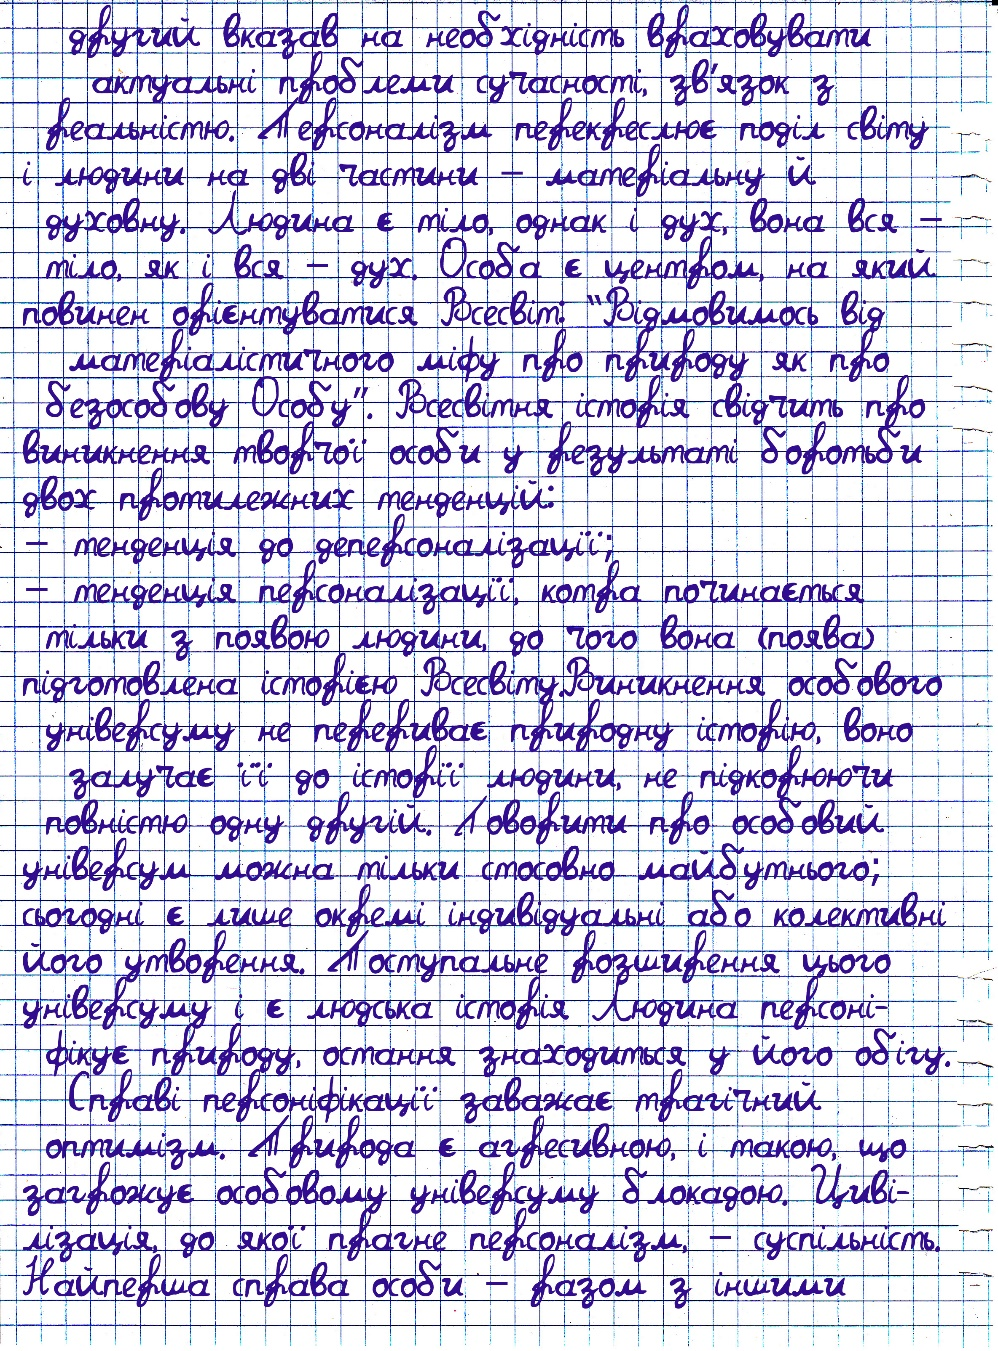 другий вказав на необхідність враховувати
актуальні проблеми сучасності, зв'язок з
реальністю. Персоналізм перекреслює поділ світу
і людини на дві частини – матеріальну й
духовну. Людина є тіло, однак і дух, вона вся –
тіло, як і вся – дух. Особа є центром, на який
повинен орієнтуватися Всесвіт: "Відмовимось від
матеріалістичного міфу про природу як про
безособову Особу". Всесвітня історія свідчить про
виникнення творчої особи у результаті боротьби
двох протилежних тенденцій:
– тенденція до деперсоналізації;
– тенденція персоналізації, котра починається
тільки з появою людини, до чого вона (поява)
підготовлена історією Всесвіту.Виникнення особового
універсуму не перериває природну історію, воно
залучає її до історії людини, не підкорюючи
повністю одну другій. Говорити про особовий
універсум можна тільки стосовно майбутнього;
сьогодні є лише окремі індивідуальні або колективні
його утворення. Поступальне розширення цього
універсуму і є людська історія Людина персоні-
фікує природу, остання знаходиться у його обігу.
Справі персоніфікації заважає трагічний
оптимізм. Природа є агресивною, і такою, що
загрожує особовому універсуму блокадою. Циві-
лізація, до якої прагне персоналізм, – суспільність.
Найперша справа особи – разом з іншими